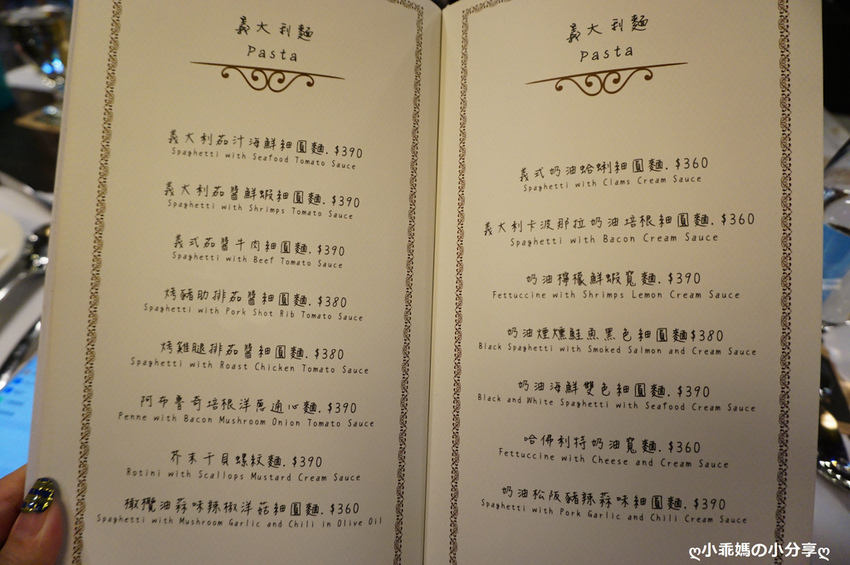 義大利麵
Pasta
義大利茄汁海鮮細圓麵.$390
Spaghetti with Seafood Tomato Sauce
義大利茄醬鮮蝦細圓麵.$390
Spaghetti with Shrimps Tomato Sauce
義式茄醬牛肉細圓麵.$390
Spaghetti with Beef Tomato Sauce
烤豬肋排茄醬細圓麵.$380
Spaghetti with Pork Shot Rib Tomato Sauce
烤雞腿排茄醬細圓麵.$380
Spaghetti with Roast Chicken Tomato Sauce
阿布魯奇培根洋蔥通心麵.$390
Penne with Bacon Mushroom Onion Tomato Sauce
芥末干貝螺紋麵.$390
Rotini with Scallops Mustard Cream Sauce
橄欖油蒜味辣椒洋菇細圓麵.$360
Spaghetti with Mushroom Garlic and Chili in Olive Oil
義大利麵
Pasta
義式奶油蛤蜊細圓麵.$360
Spaghetti with Clams Cream Sauce
義大利卡波那拉奶油培根細圓麵.$360
Spaghetti with Bacon Cream Sauce
奶油檸檬鮮蝦寬麵.$390
Fettuccine with Shrimps Lemon Cream Sauce
奶油煙燻鮭魚黑色細圓麵$380
Black Spaghetti with Smoked Salmon and Cream Sauce
奶油海鮮雙色細圓麵.$390
Black and White Spaghetti with Seafood Cream Sauce
哈佛利特奶油寬麵.$360
Fettuccine with Cheese and Cream Sauce
奶油松阪豬辣蒜味細圓麵.$390
Spaghetti with Pork Garlic and Chili Cream Sauce
ღ小乖媽の小分享ღ